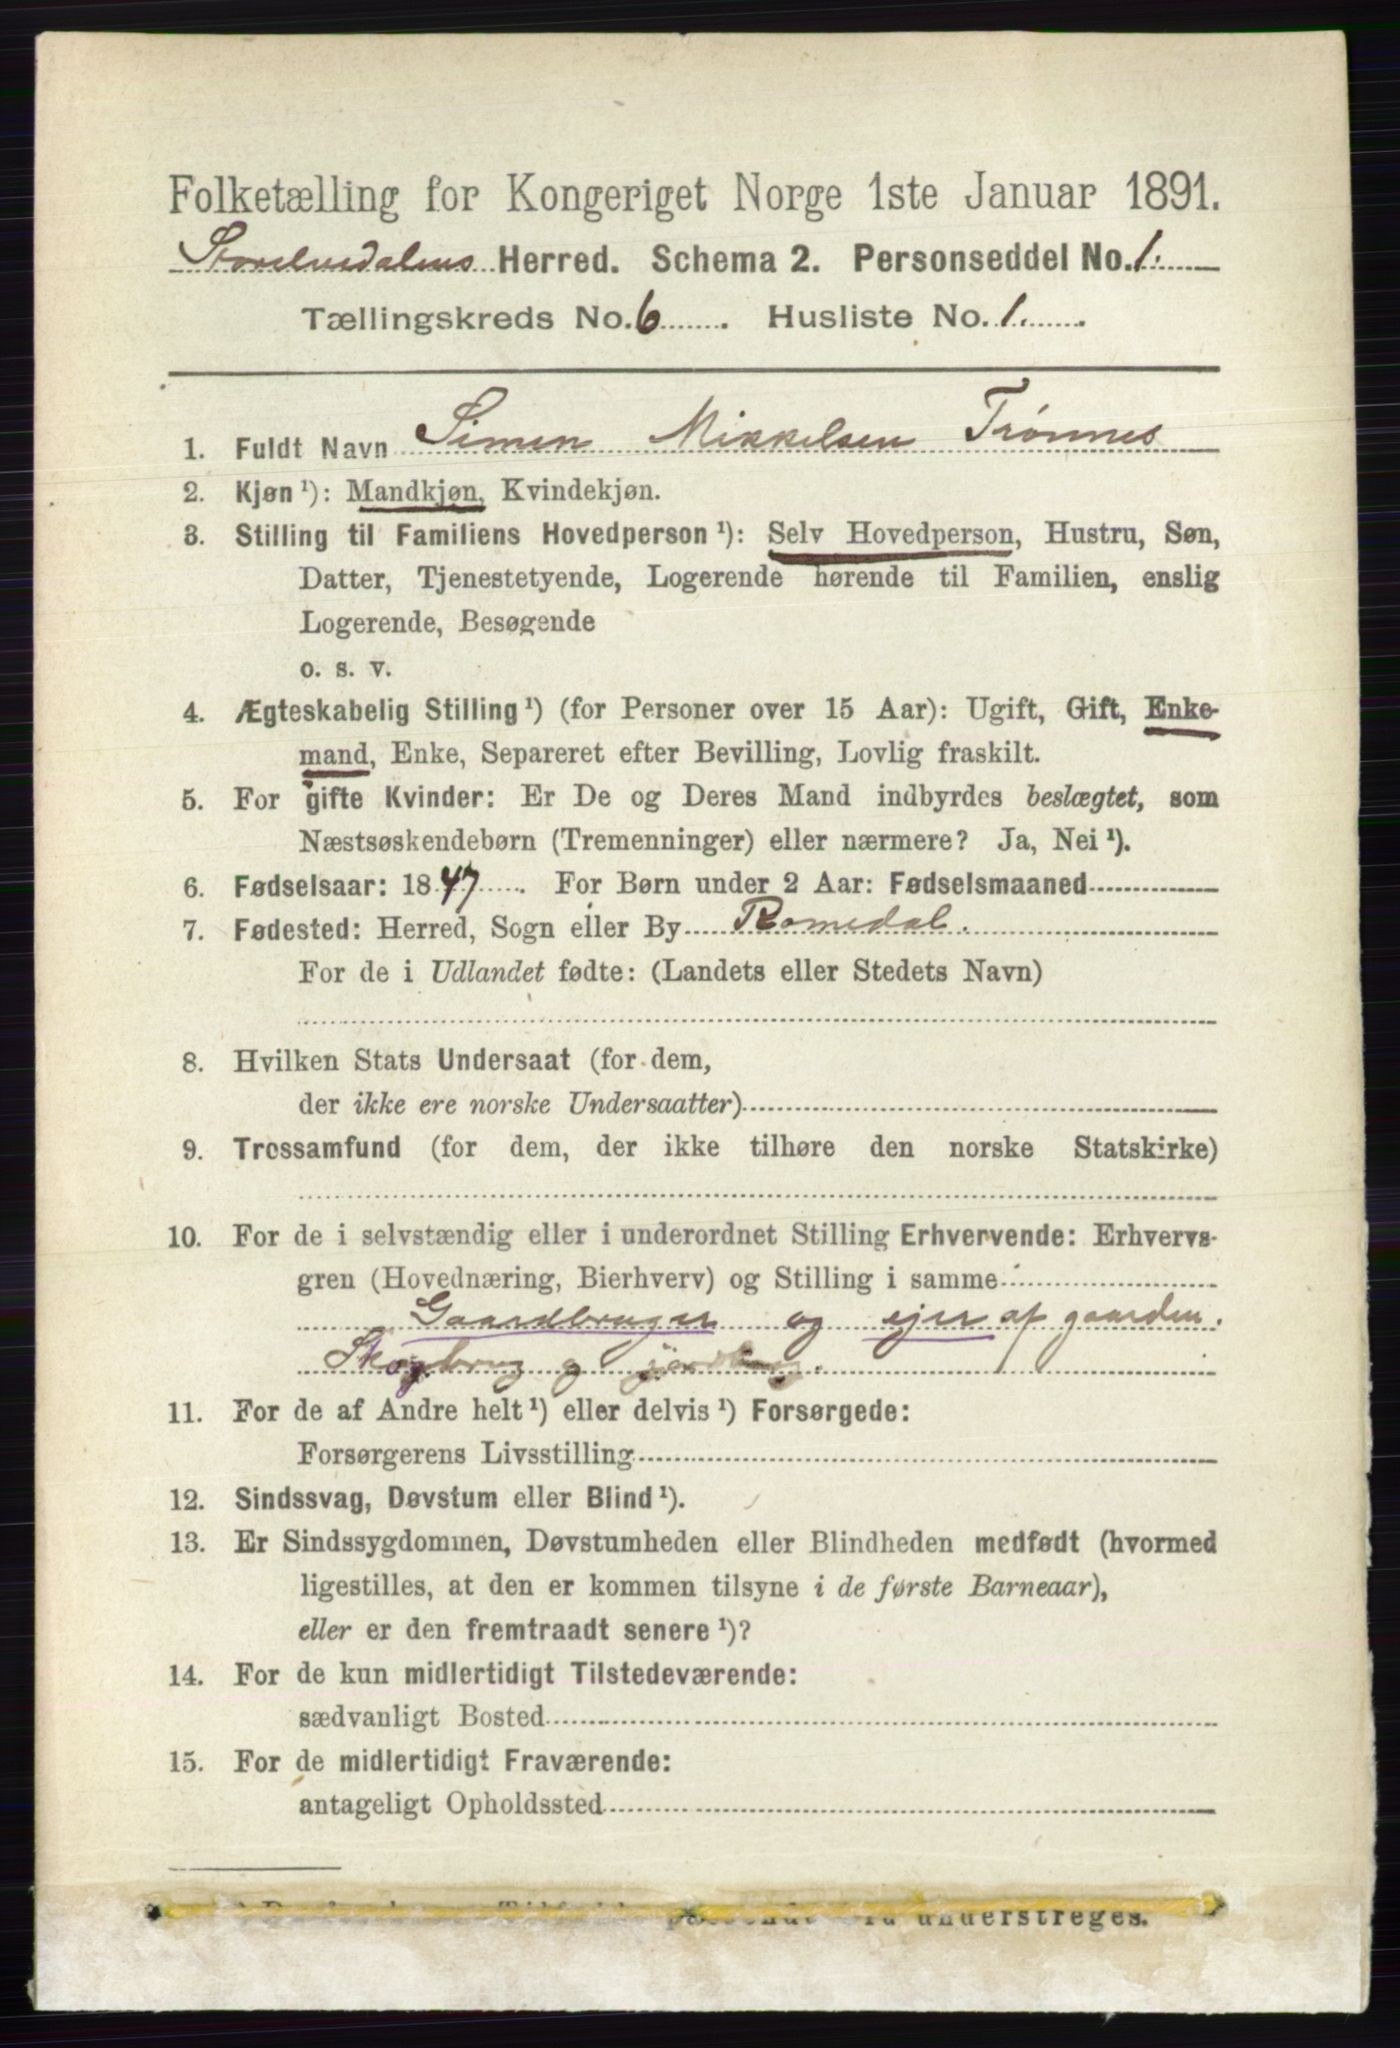 Folketælling for Kongeriget Norge 1ste Januar 1891.
Storelvedalens Herred. Schema 2. Personseddel No. 1.
Tællingskreds No. 6. Husliste No. 1.
1. Fuldt Navn Simen Mikkelsen Trønnes
2. Kjøn ¹): Mandkjøn, Kvindekjøn.
3. Stilling til Familiens Hovedperson ¹): Selv Hovedperson, Hustru, Søn,
Datter, Tjenestetyende, Logerende hørende til Familien, enslig
Logerende, Besøgende
o. s. v.
4. Ægteskabelig Stilling ¹) (for Personer over 15 Aar): Ugift, Gift, Enke-
mand, Enke, Separeret efter Bevilling, Lovlig fraskilt.
5. For gifte Kvinder: Er De og Deres Mand indbyrdes beslægtet, som
Næstsøskendebørn (Tremenninger) eller nærmere? Ja, Nei ¹).
6. Fødselsaar: 1847. For Børn under 2 Aar: Fødselsmaaned
7. Fødested: Herred, Sogn eller By Romedal.
For de i Udlandet fødte: (Landets eller Stedets Navn)
8. Hvilken Stats Undersaat (for dem,
der ikke ere norske Undersaatter)
9. Trossamfund (for dem, der ikke tilhøre den norske Statskirke)
10. For de i selvstændig eller i underordnet Stilling Erhvervende: Erhvervs-
gren (Hovednæring, Bierhverv) og Stilling i samme
Gaardbruger og ejer af gaarden.
Skogbrug og jordbrug.
11. For de af Andre helt ¹) eller delvis ¹) Forsørgede:
Forsørgerens Livsstilling
12. Sindssvag, Døvstum eller Blind ¹).
13. Er Sindssygdommen, Døvstumheden eller Blindheden medfødt (hvormed
ligestilles, at den er kommen tilsyne i de første Barneaar),
eller er den fremtraadt senere ¹)?
14. For de kun midlertidigt Tilstedeværende:
sædvanligt Bosted
15. For de midlertidigt Fraværende:
antageligt Opholdssted
understreges.